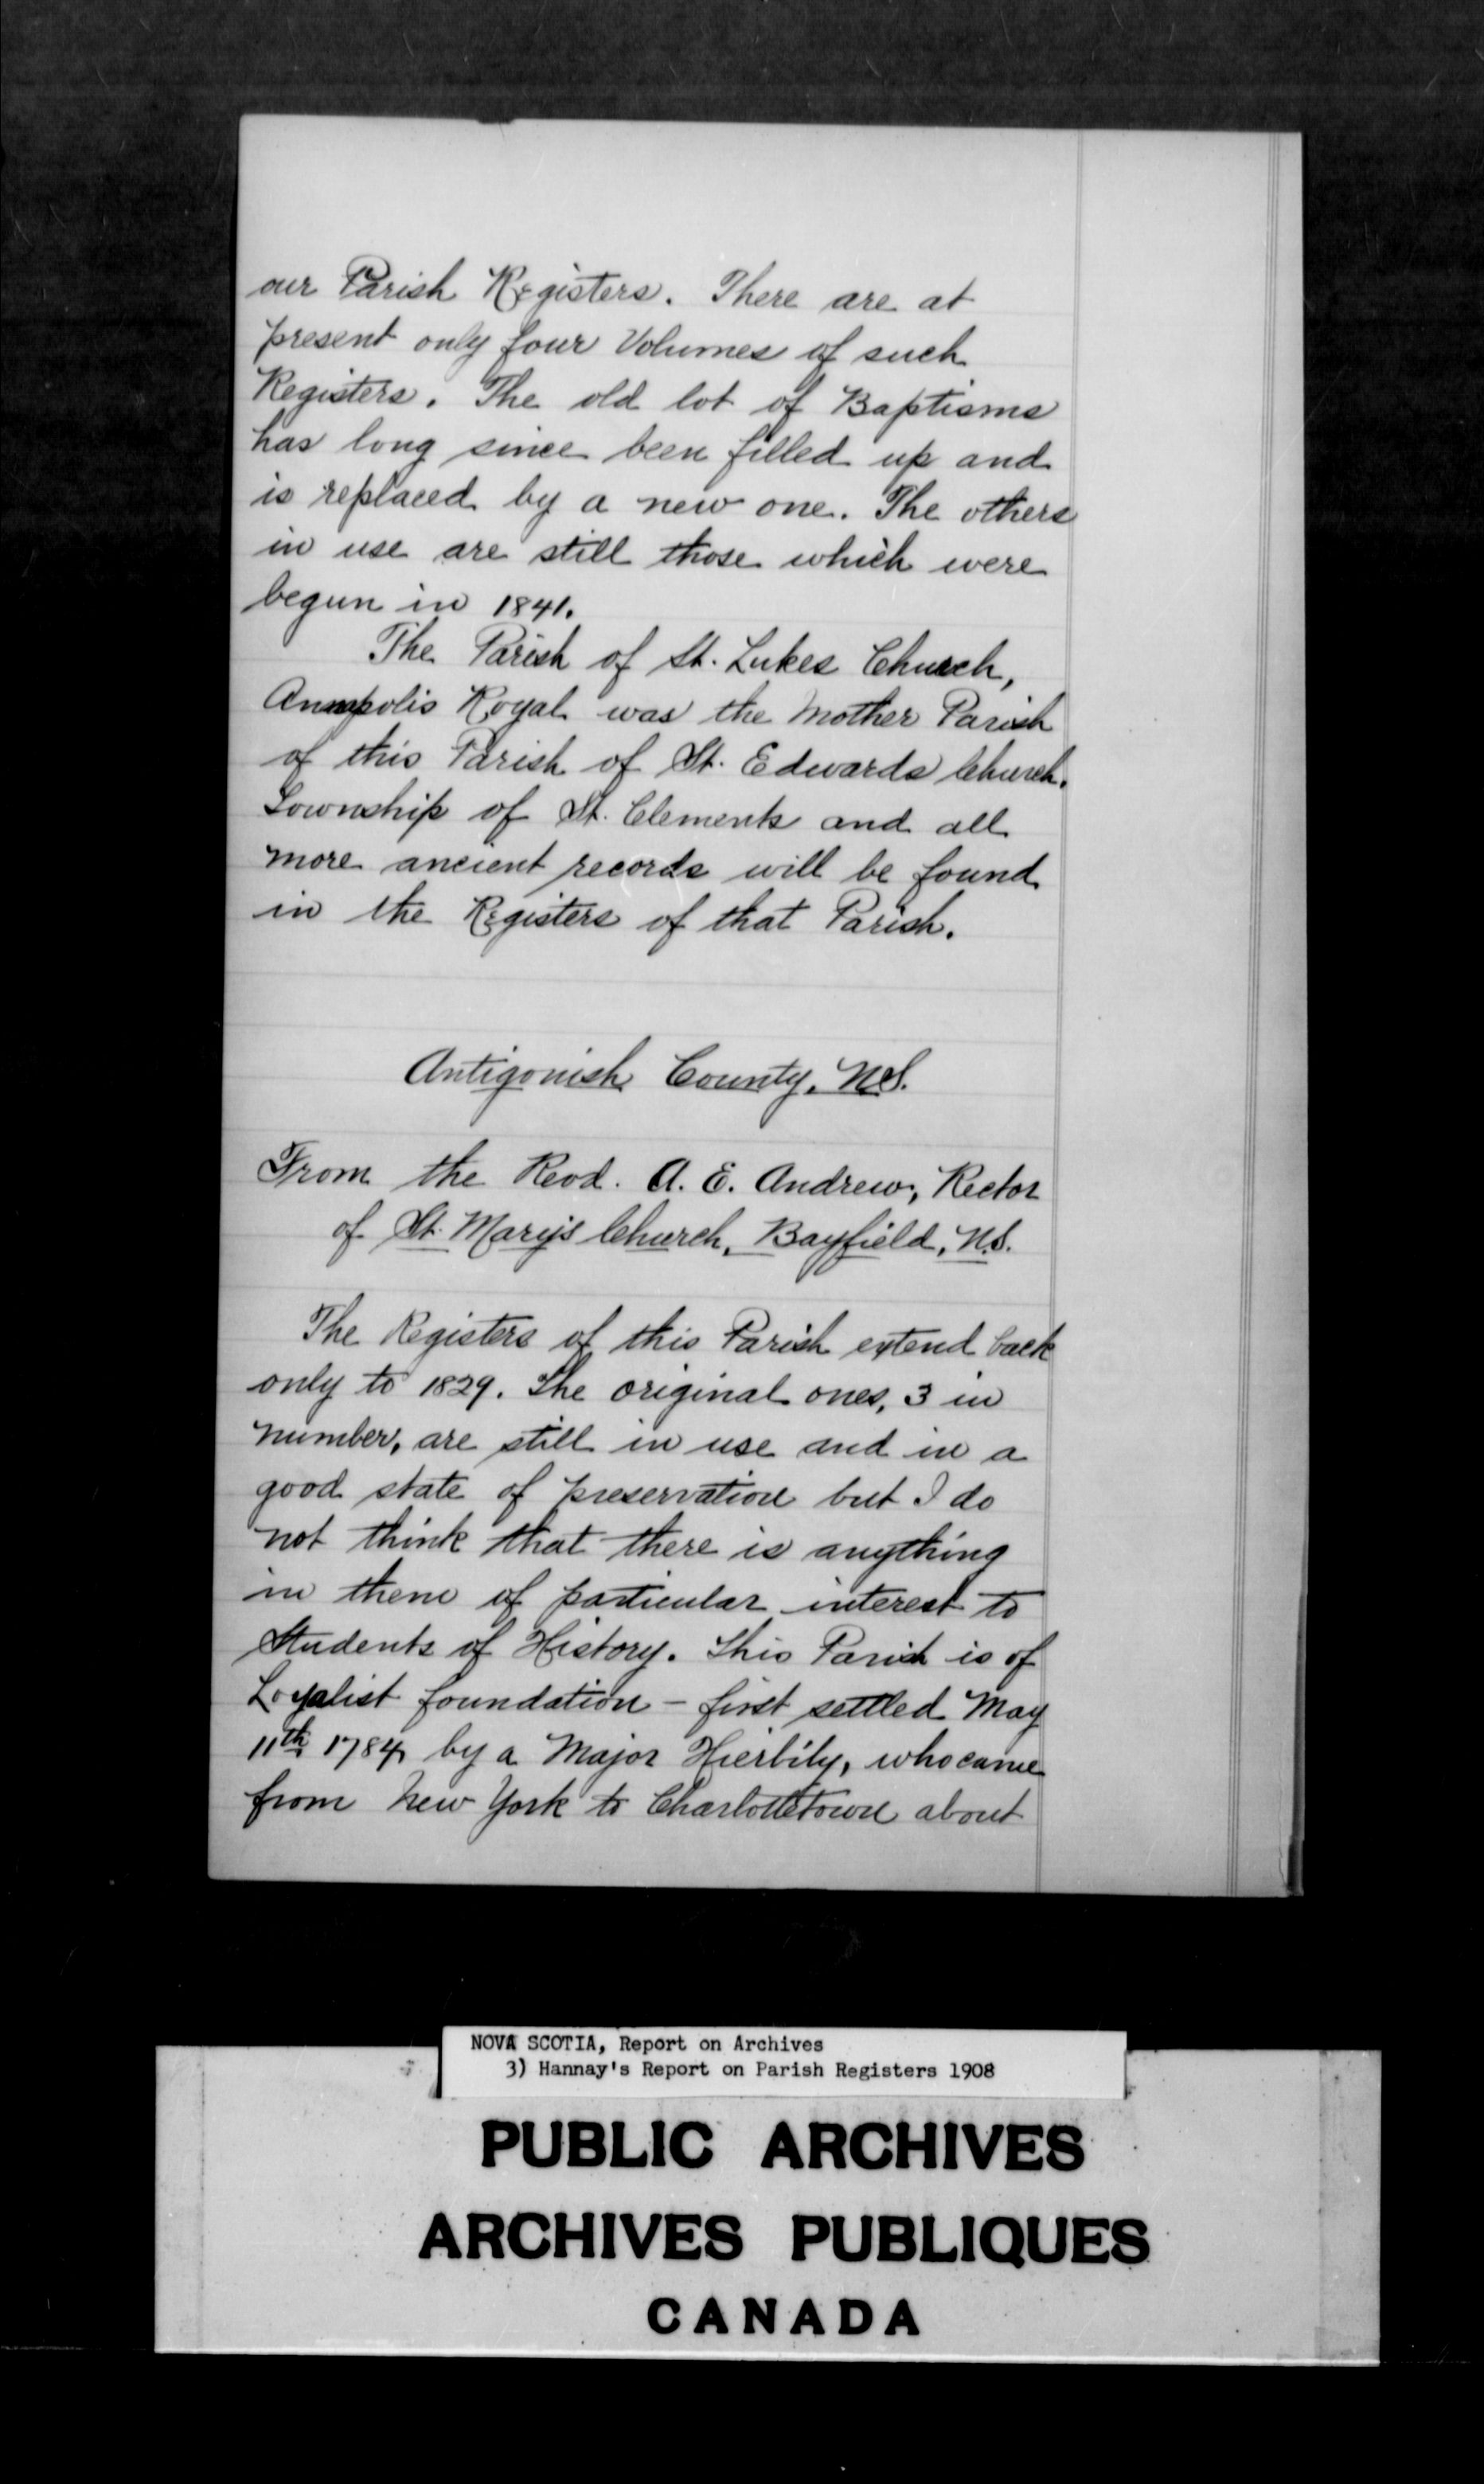 our Parish Registers. There are at
present only four Volumes of such
Registers. The old lot of Baptisms
has long since been filled up and
is replaced by a new one. The others
in use are still those which were
begun in 1841.
The Parish of St. Lukes Church,
Annapolis Royal was the Mother Parish
of this Parish of St. Edwards Church.
Township of St. Clements and all
more ancient records will be found
in the Registers of that Parish.
Antigonish County, N.S.
From the Revd. A. E. Andrew, Rector
of St. Mary's Church, Bayfield, N.S.
The Registers of this Parish extend back
only to 1829. The original ones, 3 in
number, are still in use and in a
good state of preservation but I do
not think that there is anything
in them of particular interest to
Students of History. This Parish is of
Loyalist foundation - first settled May
11th 1784 by a Major Hierbily, who came
from New York to Charlottetown about
NOVA SCOTIA, Report on Archives
3) Hannay's Report on Parish Registers 1908
PUBLIC ARCHIVES
ARCHIVES PUBLIQUES
CANADA